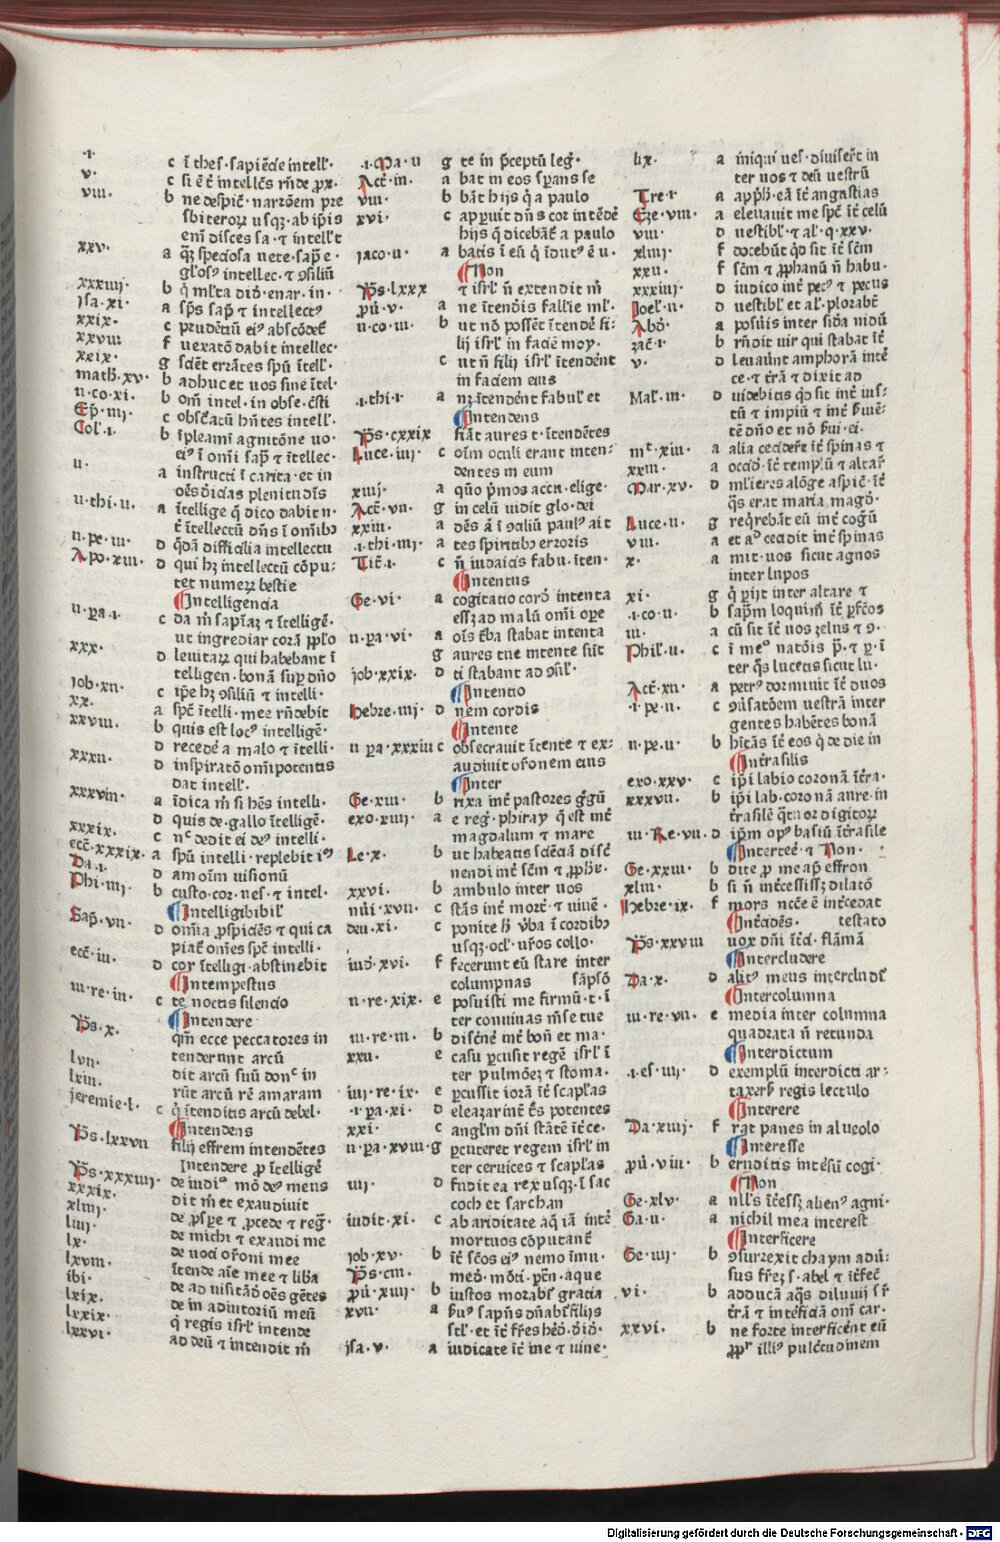 .i. c ī thes. sapiēcie intell'.
v. c si ē ē intellc̄s rn̄de ꝓx.
viii. b ne despic̄. narrōem pre
sbiteroꝝ usqꝫ. ab ip̄is
eni disces sa. ⁊ intell't
xxv. a q̄ꝫ speciosa uete. sap̄ e.
gl'os⁹ intellec. ⁊ ɔsiliū
xxxiiij. b q̄ ml'ta did. enar. in.
Isa. xi. a sp̄s sap̄ ⁊ intellect⁹
xxix. c prudētiā ei⁹ abscōdet
xxviii f uexatō dabit intellec.
xxix. g sciēt errātes spū ītell'.
math. xv. b adhuc et uos sine ītel.
ii. co. xi. b om̄ intel. in obse. c̄sti
Ep̄. iiij. c obsc̄atū hn̄tes intell'.
Col'. i. b īpleamī agnitōne uo.
ei⁹ ī om̄i sap̄ ⁊ ītellec.
ii. a instructi ī carita. et in
oēs diuicias plenitudīs
ii. thi. ii. a ītellige q̄ dico dabit n.
t̄ ītellectū dn̄s ī omībꝫ
ii. pe. iii. d q̄dā difficilia intellectu
Apo. xiii. d qui hꝫ intellectū cōpu⸗
tet numeꝝ bestie
Intelligencia
ii. pa. i. c da m̄ sapīaꝫ ⁊ ītelligē.
ut ingrediar corā pp̄lo
xxx. d leuitaꝝ qui habebant ī
telligen. bonā sup̄ dn̄o
Job. xii. c ip̄e hꝫ ɔsiliū ⁊ intelli.
xx. a sp̄c ītelli. mee rn̄debit
xxviii. b quis est loc⁹ intelligē.
d recede a malo ⁊ ītelli.
xxxii. d inspiratō om̄ipotentis
dat intell'.
xxxviii. a īdica m̄ si hēs intelli.
d quis de. gallo ītelligē.
xxxix. c n̄c dedit ei de⁹ intelli.
ecc̄. xxxix. a spū intelli. replebit i⁹
Da. i. d am oīm uisionū
Phi. iiij. b custo. cor. ues. ⁊ intel.
Intelligibibil'
Sap̄. vii. d om̄ia ꝓspiciēs ⁊ qui ca
piat̄ om̄es sp̄c intelli.
ecc̄. iii. d cor ītelligi. abstinebit
Intempestus
iii. re. iii. c te noctis silencio
Intendere
Ps̄. x. qm̄ ecce peccatores in
tenderunt arcū
lvii. dit arcū suū don̄c in
lxiii. rūt arcū rē amaram
jeremie. l. c q̄ ītenditis arcū debel.
Intendens
Ps̄. lxxvii filij effrem intendētes
Intendere ꝓ ītelligē
Ps̄. xxxiiij. de iudi⁹ mō de⁹ meus
xxxix. dit m̄ et exaudiuit
xliiij. de ꝓsp̄e ⁊ ꝓcede ⁊ reg̅.
liij. de michi ⁊ exaudi me
lx. de uoci or̄oni mee
lxviii. ītende aīe mee ⁊ lib̄a
ibi. de ad uisitādō oēs gētes
lxix. de in adiutoriū meū
lxxix. q̄ regis isrl' intende
lxxvi. ad deū ⁊ intendit m̄
.i. Ma. ii g te in p̄ceptū leg̅.
Act̄. iii. a bat in eos sperans se
viii. b bāt hijs q̄ a paulo
xvi. c apperuit dn̄s cor intēdē
hijs q̄ dicebāt̄ a paulo
jaco. ii. a batis ī eū q̄ īdut⁹ ē u.
Non
Ps̄. lxxx ⁊ isrl' n̄ extendit m̄
pū. v. a ne ītendēis fall'ie ml'.
ii. co. iii. b ut nō possēt ītendē fi⸗
lij isrl' in faciē moy.
c ut n̄ filij isrl' ītendēnt
in faciem eius
.i. thi. i. a nꝫ ītendēnt fabul' et
Intendens
Ps̄. cxxix fiāt aures t. ītendētes
Luce. iiij. c oīm oculi erant inten⸗
dentes in eum
xiiij. a q̄uo p̄mos accu. elige.
Act̄. vii. g in celū uidit glo. dei
xxiii. a dēs ā ī ɔsiliū paul⁹ ait
.i. thi. iiij. a tes spiritibꝫ erroris
Tit̄. i. c n̄ iudaicis fabu. ītēn.
Intentus
Ge. vi. a cogitatio cordō intenta
essꝫ ad malū om̄i ope
ii. pa. vi. a oīs t̄ba stabat intenta
g aures tue intente sīt
job. xxix. d ti stabant ad ɔsil'.
Intentio
hebre. iiij. d nem cordis
Intente
ii pa. xxxiii c obsecrauit ītente ⁊ ex⸗
audiuit or̄onem eius
Inter
Ge. xiii. b rixa int̄ pastores ḡgū
exo. xiiij. a e reg̅. phiray q̄ est int̄
magdalum ⁊ mare
Le. x. b ut habeatis sciēciā discē
nendi int̄ sc̄m ⁊ ꝓph̄.
xxvi. b ambulo inter uos
nūi. xvii. c stās int̄ mort̄. ⁊ uiuē.
deu. xi. c ponite h̄ v̄ba ī cordibꝫ
usqꝫ. ocl'. ur̄os collo.
iud̄. xvi. f fecerunt eū stare inter
columpnas sāpsō
ii. re. xix. e posuisti me firmū. t. ī
ter conuiuas m̄se tue
iii. re. iii. b discē̄ne int̄ bon̄ et ma.
xxii. e casu ꝑcusit regē isrl' ī
ter pulmōeꝫ ⁊ stoma.
iiij. re. ix. e ꝑcussit iorā īt̄ scapl'as
.i. pa. xi. d eleazar int̄ t̄s potentes
xxi. c angl'm dn̄i stātē īt̄ ce.
ii. pa. xviii. g ꝑcuteret regem isrl' in
ter ceruices ⁊ scapl'as
iiij. d fudit ea rex usqꝫ. ī sac
coth et sarthan
iudit. xi. c ab ariditate aq̄ iā int̄
mortuos cōputant̄
job. xv. b īt̄ sc̄os ei⁹ nemo īmu.
Ps̄. ciii. med. mōti. ꝑt̄n. aque
pū. xiiij. b iustos morabit̄ gracia
xvii. a fu⁹ sapn̄s dn̄abit̄ filijs
stl'. et īt̄ fr̄es hēd. did.
jsa. v. a iudicate īt̄ me ⁊ uine.
lix. a iniqui ues. diuiser̄t in
ter uos ⁊ deū uestrū
Tre. i a appr̄h. eā īt̄ angustias
Eze. viii. a eleuauit me sp̄c īt̄ celū
viii. d uestibl' et al'. q. xxv.
xliiij. f docebūt qd sit īt̄ sc̄m
xxii. f sc̄m ⁊ ꝓphanū n̄ habu.
xxxiiij. d iudico int̄ pec⁹ ⁊ pecus
Joel'. ii. d uestibl' et al'. plorabt̄
Abd. a posuis inter sid̄a nidū
zac̄. i b rn̄dit uir qui stabat īt̄
v. d leuaūnt amphorā int̄
ce. ⁊ t̄rā ⁊ dixit ad
Mal'. iii. d uidebitis qd sit int̄ ius⸗
tū ⁊ impiū ⁊ int̄ s̄uiē⸗
tē dn̄o et nō s̄ui. ei.
mt. xiii. a alia cecider̄t īt̄ spinas ⁊
xxiii. a occid. īt̄ templū ⁊ altar̄
Mar. xv. d ml'ieres alōge aspic̄. īt̄
q̄s erat maria magd.
Luce. ii. g reqrebāt eū int̄ cog̅ū
viii. a et ao cecidit int̄ spinas
x. a mit. uos sicut agnos
inter lupos
xi. g q̄ ꝑijt inter altare ⁊
.i. co. ii. b sap̄m loquim̄ īt̄ ꝑfc̄os
iii. a cū sit īt̄ uos zelus ⁊ ɔ.
Phil'. ii. c ī meo natōis p̄. ⁊ ꝑ. ī
ter q̄s lucetis sicut lu.
Act̄. xii. a petr⁹ dormiuit īt̄ duos
.i. pe. ii. c ɔu̅satōem uestrā inter
gentes habētes bonā
ii. pe. ii. b hītās īt̄ eos q̄ de die in
Intrasilis
exo. xxv. c ip̄i labio coronā īt̄ra.
xxxvii. b ip̄i lab. coronā aure. in
trasilē q̄tuor digitoꝝ
iii. Re. vii. d ip̄m op⁹ basiū īt̄rasile
Interceē. ⁊ Non.
Ge. xxiii. b dite ꝓ me ap̄ effron
xliii. b si n̄ int̄cessissꝫ dilatō
hebre. ix. f mors nc̄ce ē int̄cedat
Intc̄idēs. testato
Ps̄. xxviii uox dn̄i īt̄cid. flāmā
Intercludere
Da. x. d alit⁹ meus intercludit̄
Intercolumna
iii. re. vii. e media inter columna
quadrata n̄ retunda
Interdictum
.i. es. iiij. d exemplū interdicti ar⸗
taxerx̄ regis lectulo
Interere
Da. xiiij. f rat panes in alueolo
Interesse
pū. viii. b eruditis int̄esū cogi.
Non
Ge. xlv. a nll's īt̄essꝫ alien⁹ agni.
Ga. ii. a nichil mea interest
Interficere
Ge. iiij. b ɔsurrexit chaym adū⸗
sus fr̄eꝫ s. abel ⁊ īt̄fec̄
vi. b adducā aq̄s diluuij sr̄
t̄rā ⁊ int̄ficiā om̄ car.
xxvi. b ne forte interficēnt eū
ꝓpr illi⁹ pulc̄tudinem
Digitalisierung gefördert durch die Deutsche Forschungsgemeinschaft - DFG